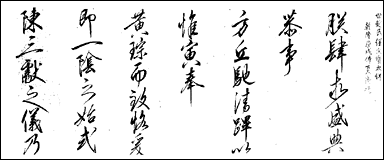 朕肆遵盛典
恭事
方丘馳清蹕以
惟寅奉
黃琮而致恪爰
即一陰之始式
陳三獻之儀乃